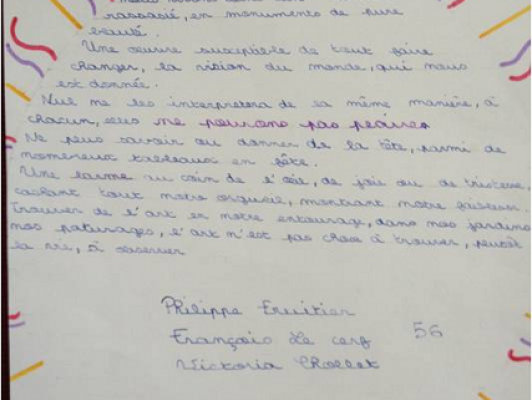 nous
rassasié, en monuments de pure
beauté.
Une œuvre susceptible de tout faire
changer, la vision du monde, qui nous
est donnée.
Nul ne les interprètera de la même manière, à
chacun, elles ne pourrons pas
Ne plus savoir ou donner de la tête, parmi de
nombreux tableaux en tête.
Une larme au coin de l'œil, de joie ou de tristesse
cachant tout notre orgueil, montrant notre faiblesse
Trouver de l'art en notre entourage, dans nos jardins
nos paturages, l'art n'est pas chose à trouver, plutôt
la vie, à observer
Philippe Fruitier
François Le cerf 56
Victoria Chollet